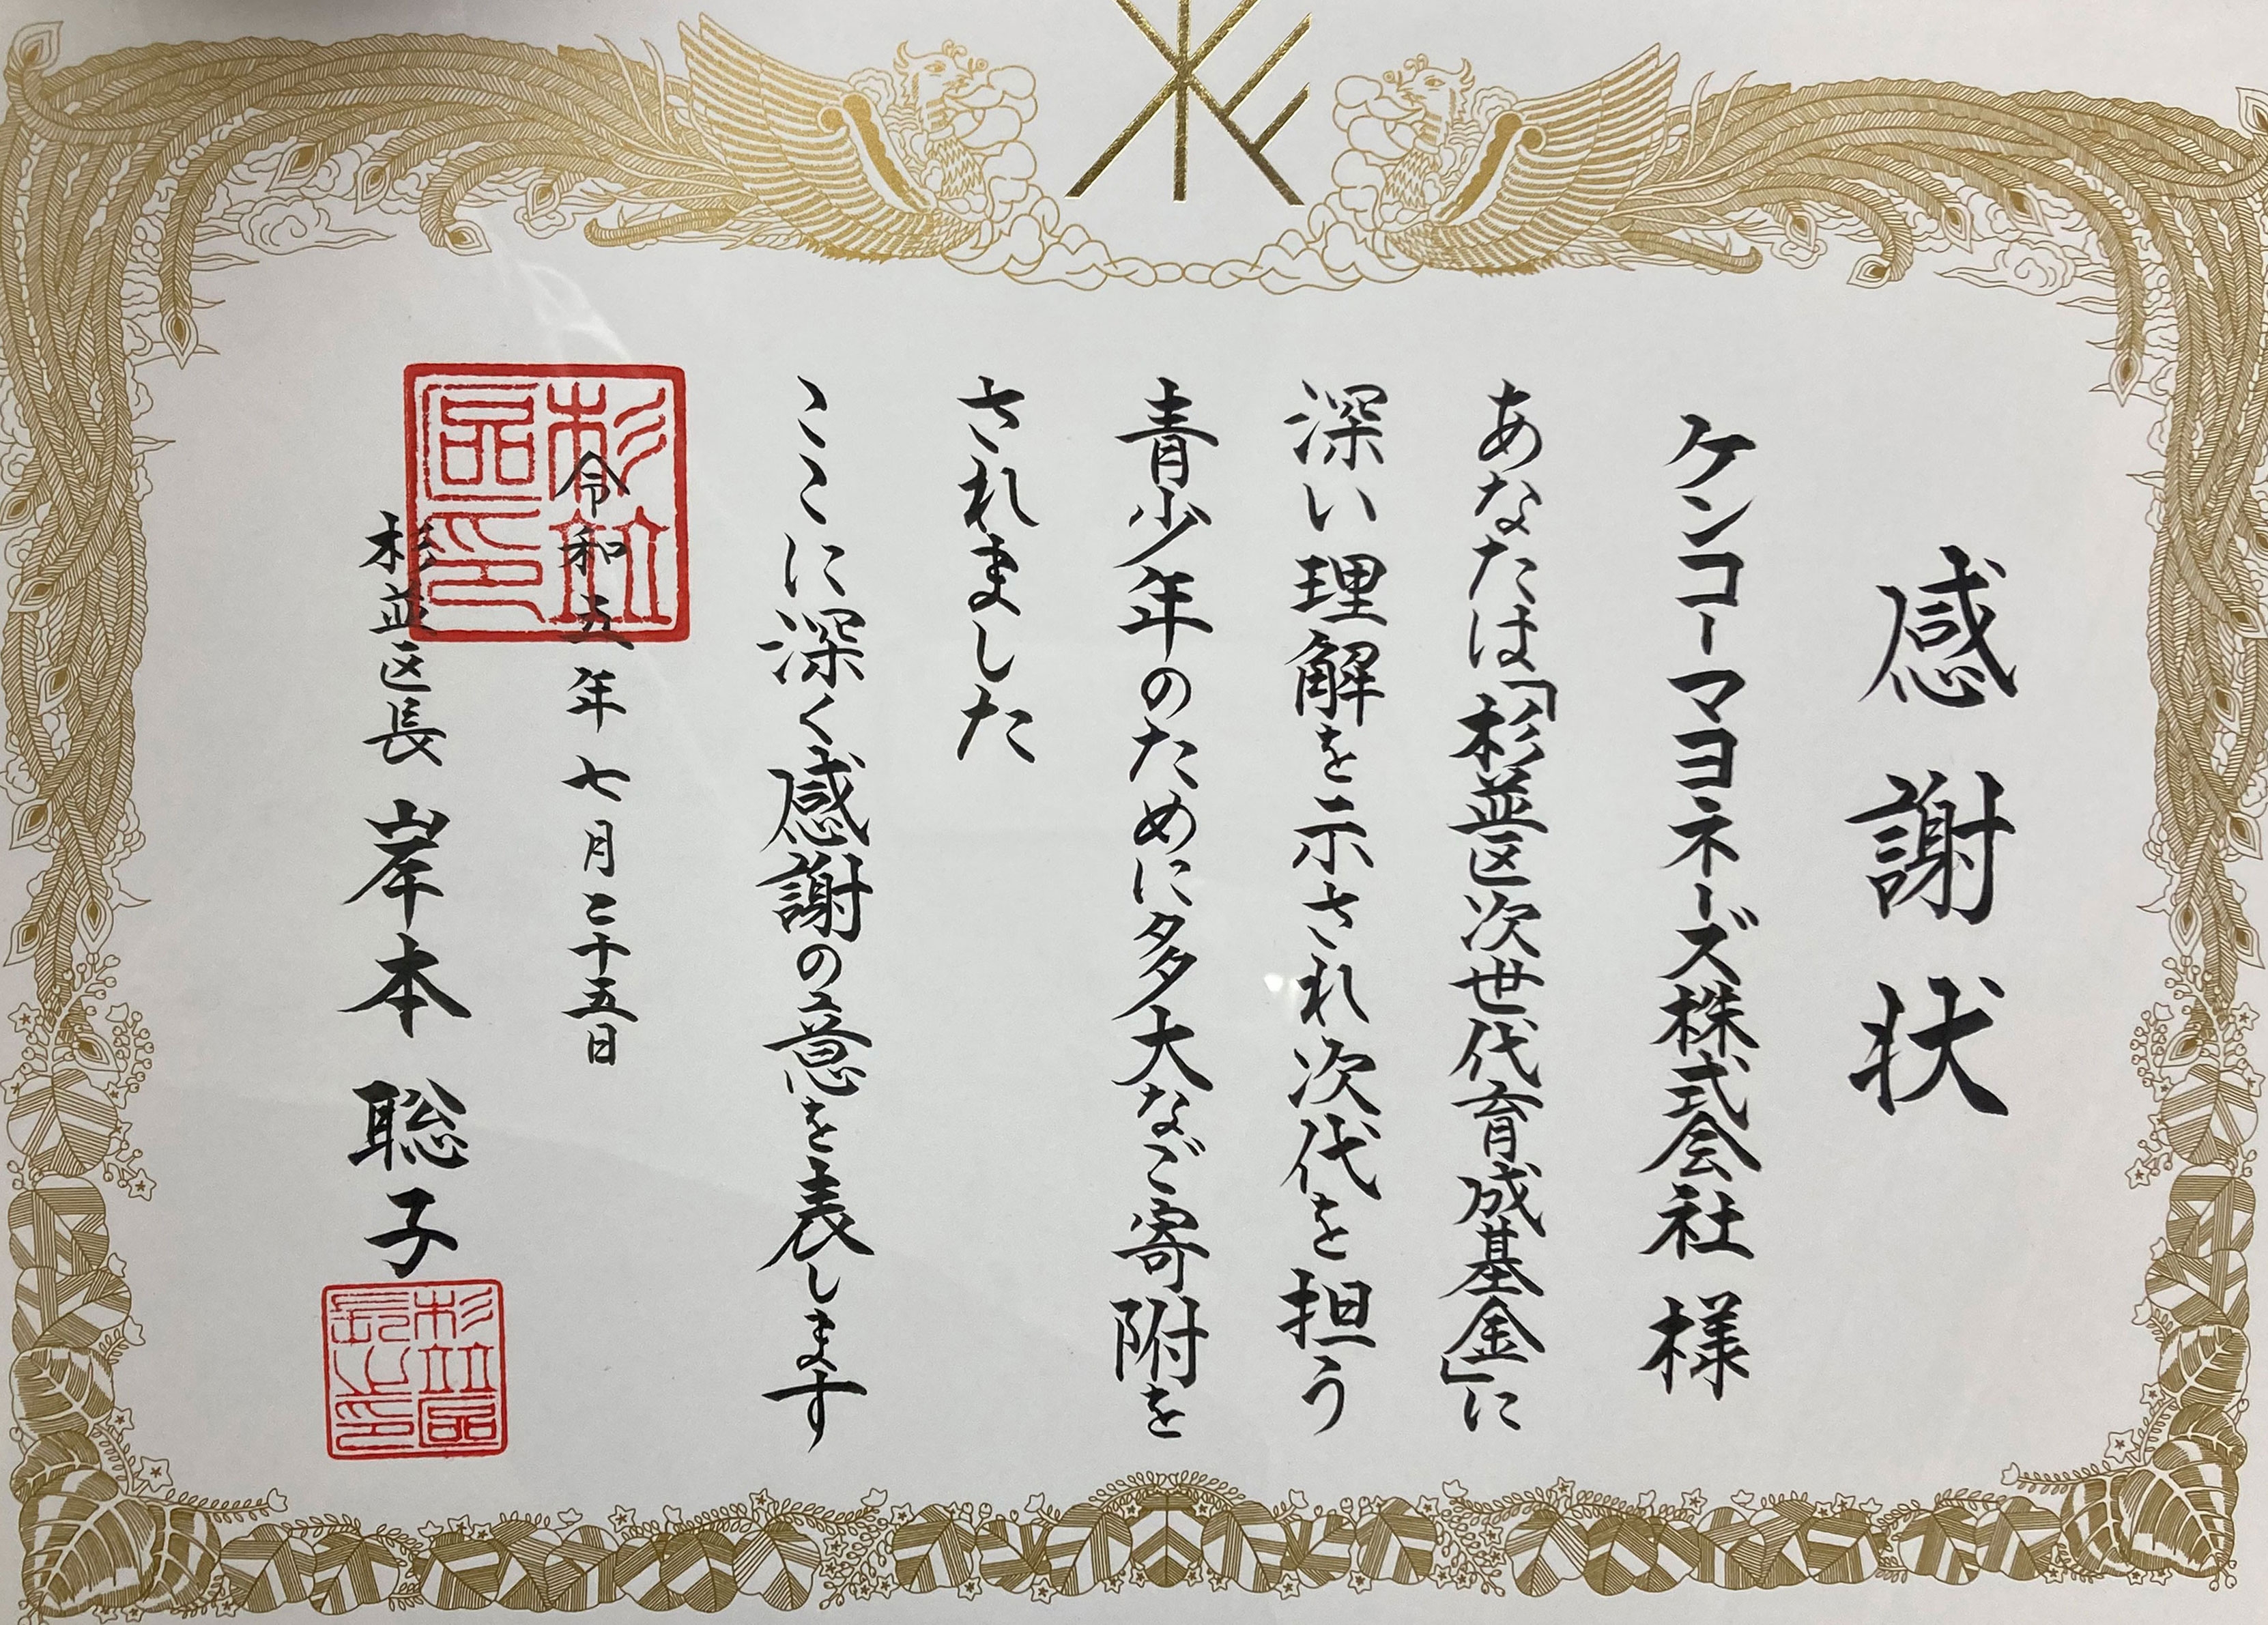 感謝状
ケンコーマヨネーズ株式会社 様
あなたは「杉並区次世代育成基金」に
深い理解を示され次代を担う
青少年のために多大なご寄附を
されました
ここに深く感謝の意を表します
令和五年七月二十五日
杉並区長 岸本 聡子
杉並區印
杉並區長之印